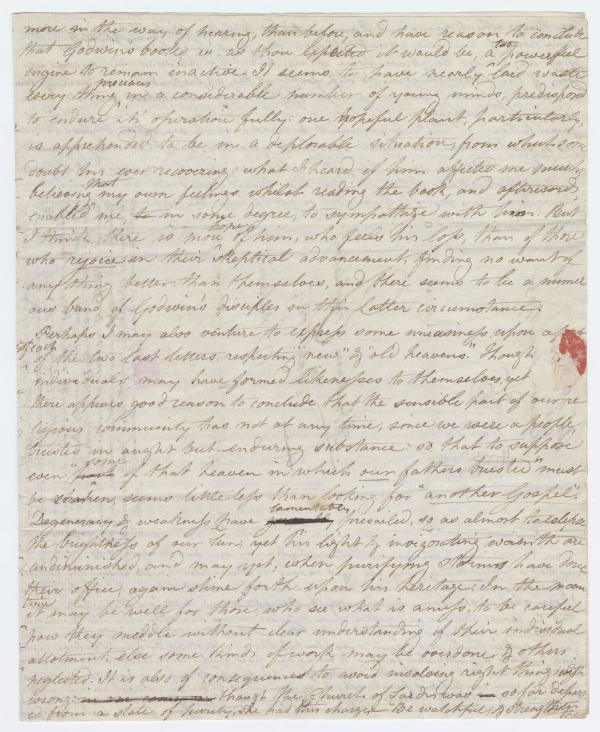 more in the way of hearing, than before, and have reason to conclude
that Godwin's book is, as thou expected it would be, a too powerful
engine to remain inactive. It seems to have nearly laid waste
every thing precious in a considerable number of young minds, predisposed
to endure its operation fully: one hopeful plant, particularly,
is apprehended to be in a deplorable situation, from which some
doubt his ever recovering: what I heard of him affected me much,
believing that my own feelings whilst reading the book, and afterwards,
enabled me, to in some degree, to sympathize with him. But
I think there is more hope of him, who feels his loss, than of those
who rejoice in their skeptical advancement, finding no want of
any thing better than themselves, and there seems to be a numer
ous band of Godwin's disciples in this latter circumstance.
Perhaps I may also venture to express some uneasiness, upon a
of each of the two last letters, respecting "new" & "old heavens." Though
individuals may have formed likenesses to themselves, yet
there appears good reason to conclude that the sensible part of our re
ligious community has not at any time, since we were a people,
trusted in aught but enduring substance: so that to suppose
even "some of that heaven in which our fathers trusted" must
be shaken, seems little less than looking for "another Gospel".
Degeneracy & weakness have lamentably prevailed, so as almost to eclipse
the brightness of our sun, yet his light & invigorating warmth are
undiminished, and may yet, when purifying storms have done
their office, again shine forth upon his heritage: In the mean
time it may be well for those who see what is amiss, to be careful
how they meddle without clear understanding of their individual
allotment, else some kinds of work may be overdone & others
neglected. It is also of consequence to avoid involving right things with
wrong: though the Church of Sardis was so far depart
ed from a state of purity, she had this charge, "Be watchful, & strengthen